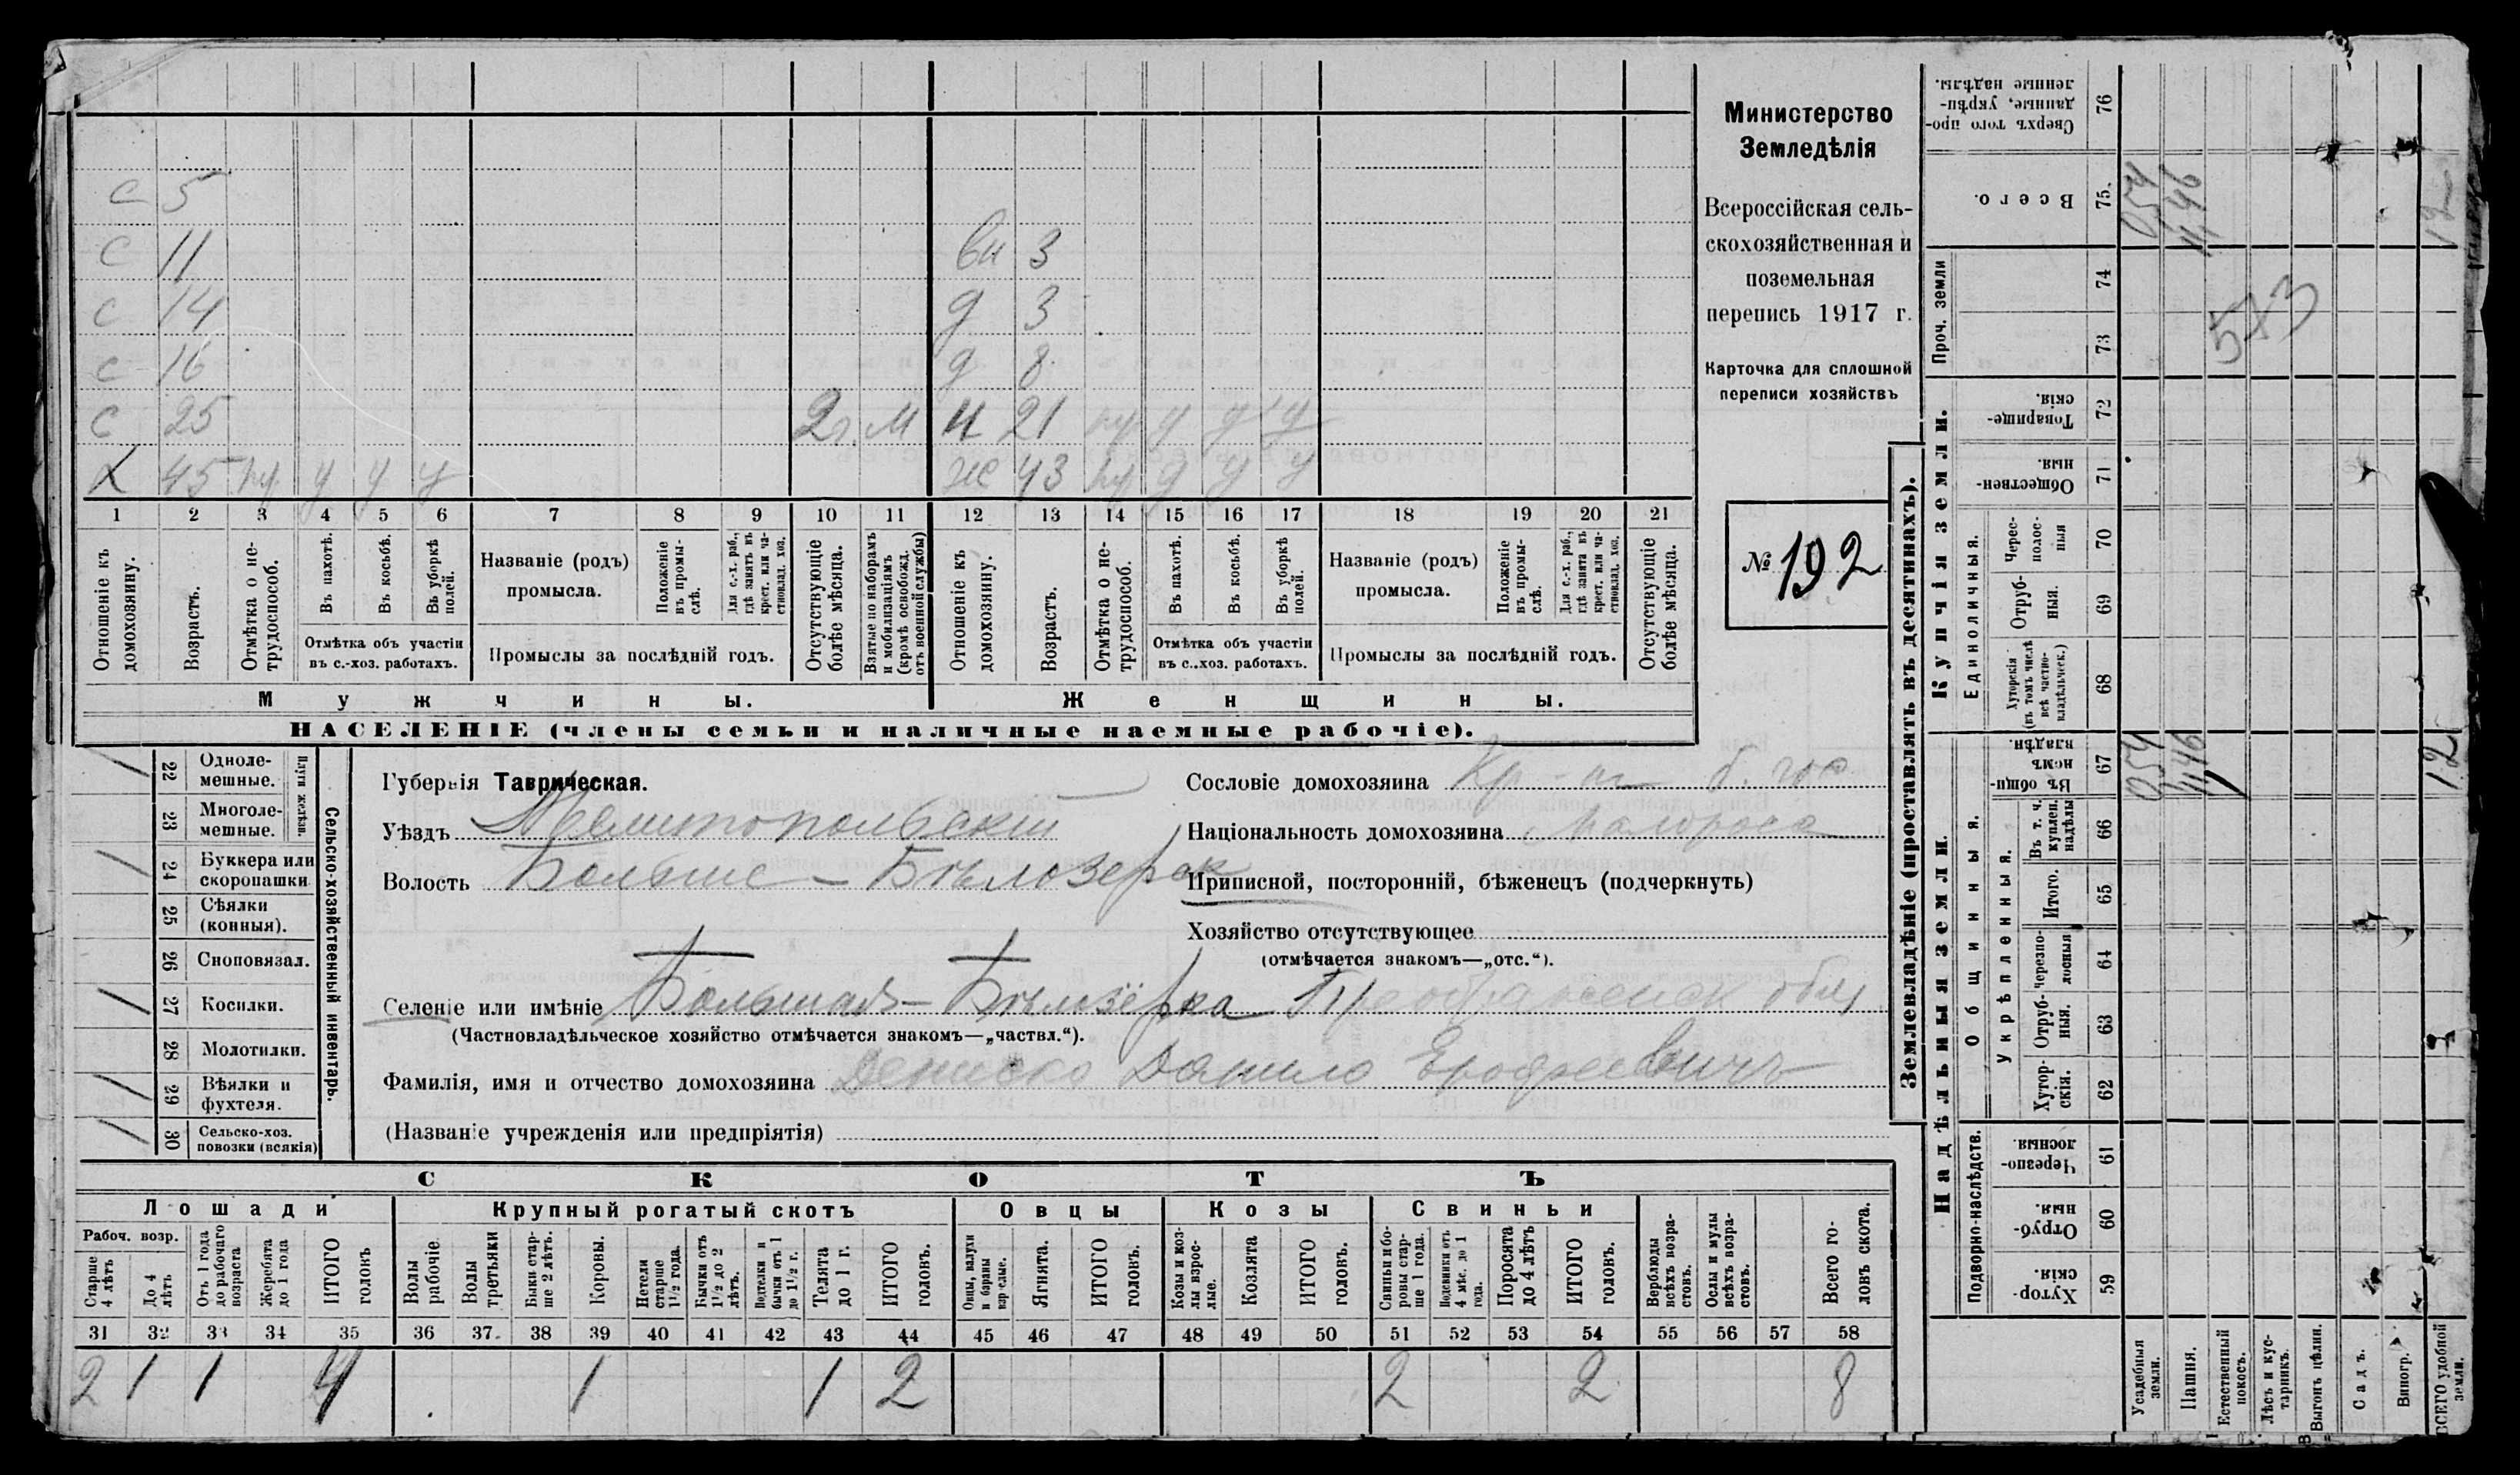 Министерство
Земледѣлія
Всероссійская сель-
скохозяйственная и
поземельная
перепись 1917 г.
Карточка для сплошной
переписи хозяйствъ
№ 192
с 5
с 11 вн 3
с 14 д 3
с 16 д 8
с 25 2 г. м н 21 у у у
х 45 у у у ж 43 у у у
1 2 3 4 5 6 7 8 9 10 11 12 13 14 15 16 17 18 19 20 21
Отношеніе къ домохозяину.
Возрастъ.
Отмѣтка о не-трудоспособ.
Въ пахотѣ.
Въ косьбѣ.
Въ уборкѣ полей.
Отмѣтка объ участіи
въ с.-хоз. работахъ.
Названіе (родъ)
промысла.
Положеніе въ промы-слѣ.
Для с.-х. раб., гдѣ занятъ въ крест. или ча-стновлад. хоз.
Промыслы за послѣдній годъ.
Отсутствующіе болѣе мѣсяца.
Взятые по наборамъ и мобилизаціямъ (кромѣ освобожд. отъ военной службы)
Отношеніе къ домохозяину.
Возрастъ.
Отмѣтка о не-трудоспособ.
Въ пахотѣ.
Въ косьбѣ.
Въ уборкѣ полей.
Отмѣтка объ участіи
въ с..хоз. работахъ.
Названіе (родъ)
промысла.
Положеніе въ промы-слѣ.
Для с.-х. раб., гдѣ занята въ крест. или ча-стновлад. хоз.
Промыслы за послѣдній годъ.
Отсутствующіе болѣе мѣсяца.
Мужчины.
Женщины.
НАСЕЛЕНІЕ (члены семьи и наличные наемные рабочіе).
Сельско-хозяйственный инвентарь.
Плуги желѣзн.
/ 22 Одноле-мешные.
23 Многоле-мешные.
/ 24 Буккера или скоропашки
25 Сѣялки (конныя).
26 Сноповязал.
/ 27 Косилки.
28 Молотилки.
/ 29 Вѣялки и фухтеля.
/ 30 Сельско-хоз. повозки (всякія)
Губернія Таврическая.
Уѣздъ Мелитопольскій
Волость Больше-Бѣлозерск
Сословіе домохозяина Кр-нъ б. гос
Національность домохозяина Малоросс
Приписной, посторонній, бѣженецъ (подчеркнуть)
Хозяйство отсутствующее
(отмѣчается знакомъ—„отс.“).
Селеніе или имѣніе Большая-Бѣлозёрка Преображенск общ
(Частновладѣльческое хозяйство отмѣчается знакомъ—„частвл.“).
Фамилія, имя и отчество домохозяина Дениско Данило Ерофеевичъ
(Названіе учрежденія или предпріятія)
СКОТЪ
Лошади
Крупный рогатый скотъ
Овцы
Козы
Свиньи
Рабоч. возр.
Старше 4 лѣтъ
До 4 лѣтъ
Отъ 1 года до рабочаго возраста
Жеребята до 1 года
ИТОГО головъ
Волы рабочіе
Волы третьяки
Быки стар-ше 2 лѣтъ.
Коровы.
Нетели старше 1 1/2 года.
Бычки отъ 1 1/2 до 2 лѣтъ.
Подтелки и бычки отъ 1 до 1 1/2 г.
Телята до 1 г.
ИТОГО головъ.
Овцы, валухи и бараны взрослые.
Ягнята.
ИТОГО головъ.
Козы и коз-лы взрос-лые.
Козлята
ИТОГО головъ.
Свиньи и бо-ровы стар-ше 1 года.
Подсвинки отъ 4 мѣс. до 1 года.
Поросята до 4 лѣтъ
ИТОГО головъ.
Верблюды всѣхъ возра-стовъ.
Ослы и мулы всѣхъ возра-стовъ.
Всего го-ловъ скота.
31 32 33 34 35 36 37 38 39 40 41 42 43 44 45 46 47 48 49 50 51 52 53 54 55 56 57 58
2 1 1 4 1 1 2 2 2 8
Землевладѣніе (проставлять въ десятинахъ).
Надѣльныя земли.
Купчія земли.
Проч. земли
Подворно-наслѣдств.
Общинныя.
Укрѣпленныя.
Единоличныя.
Хутор-скія. 59
Отруб-ныя. 60
Черезпо-лосныя. 61
Хутор-скія. 62
Отруб-ныя. 63
Черезпо-лосныя 64
Итого. 65
Въ т. ч. куплен. надѣлы 66
Въ общи номъ владѣн. 67
Хуторскія (въ томъ числѣ всѣ частно-владѣльческ.) 68
Отруб-ныя. 69
Черес-полос-ныя 70
Обществен-ныя. 71
Товарище-скія. 72
73
74
Всего. 75.
Сверхъ того про-данные, укрѣп-ленные надѣлы. 76
Усадебныя земли. 054 054
Пашня. 11,46 11,46
Естественный покосъ.
Лѣсъ и кус-тарникъ.
Выгонъ цѣлин.
Садъ.
Виногр.
ВСЕГО удобной земли. 12 12
573